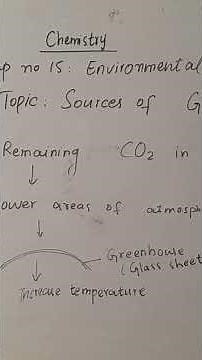 Chemistry
p no 15: Environmental
Topic: Sources of G
Remaining CO2 in
ower areas of atmosph
Greenhouse
(Glass sheet
Increase temperature